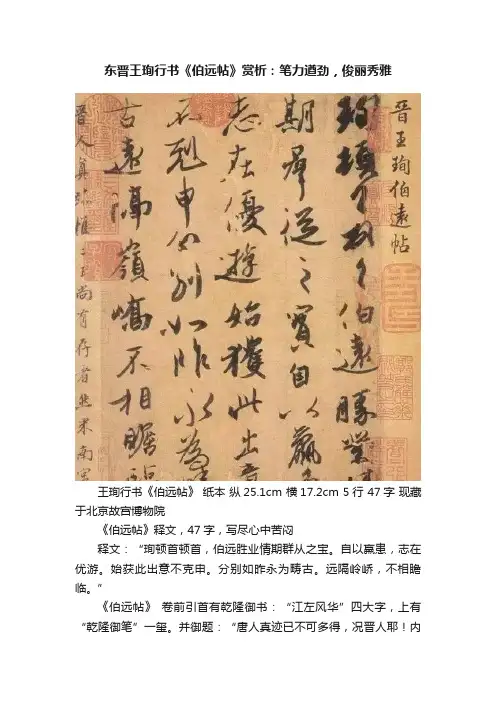 东晋王珣行书《伯远帖》赏析：笔力遒劲，俊丽秀雅
晉王珣伯遠帖
珣頓首頓首伯遠勝業
期群從之寶自以羸
志在優遊始獲此出意
不剋申分別如昨永為
古遠隔嶺嶠不相瞻
晉人真跡惟二王尚有存者然米南宮
王珣行书《伯远帖》 纸本 纵25.1cm 横17.2cm 5行 47字 现藏
于北京故宫博物院
《伯远帖》释文，47字，写尽心中苦闷
释文：“珣顿首顿首，伯远胜业情期群从之宝。自以羸患，志在
优游。始获此出意不克申。分别如昨永为畴古。远隔岭峤，不相瞻
临。”
《伯远帖》 卷前引首有乾隆御书：“江左风华”四大字，上有
“乾隆御笔”一玺。并御题：“唐人真迹已不可多得，况晋人耶！内